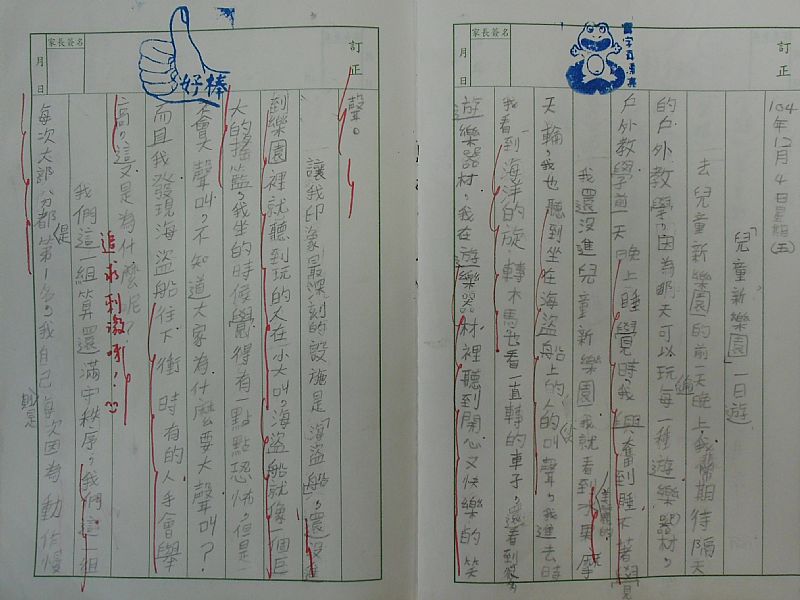 家長簽名
月 日
訂正
寫字真漂亮
104年12月4日星期(五)
「兒童新樂園一日遊」
去兒童新樂園的前一天晚上,我常期待隔天
的戶外教學,因為那天可以玩每一種遊樂器材,
戶外教學前一天晚上睡覺時,我興奮到睡不著覺
我還沒進兒童新樂園我就看到美麗的水果摩
天輪,我也聽到坐在海盜船上的人的叫聲,我進去時
我看到海洋的旋轉木馬也看一直轉的車子,還看到很多
遊樂器材,我在遊樂器材裡聽到開心又快樂的笑
家長簽名
月 日
訂正
好棒
聲。
讓我印象最深刻的設施是「海盜船」,還沒進
到樂園裡就聽到玩的人在小大叫,海盜船就像一個巨
大的搖籃,我坐的時候覺得有一點點恐怖,但是
會大聲叫,不知道大家為什麼要大聲叫?
而且我發現海盜船往下衝時有的人手會舉
高,這又是為什麼呢?
追求刺激啊!
我們這一組算還滿守秩序,我們這一組
每次大部分都是第1名,我自己每次因為動作慢